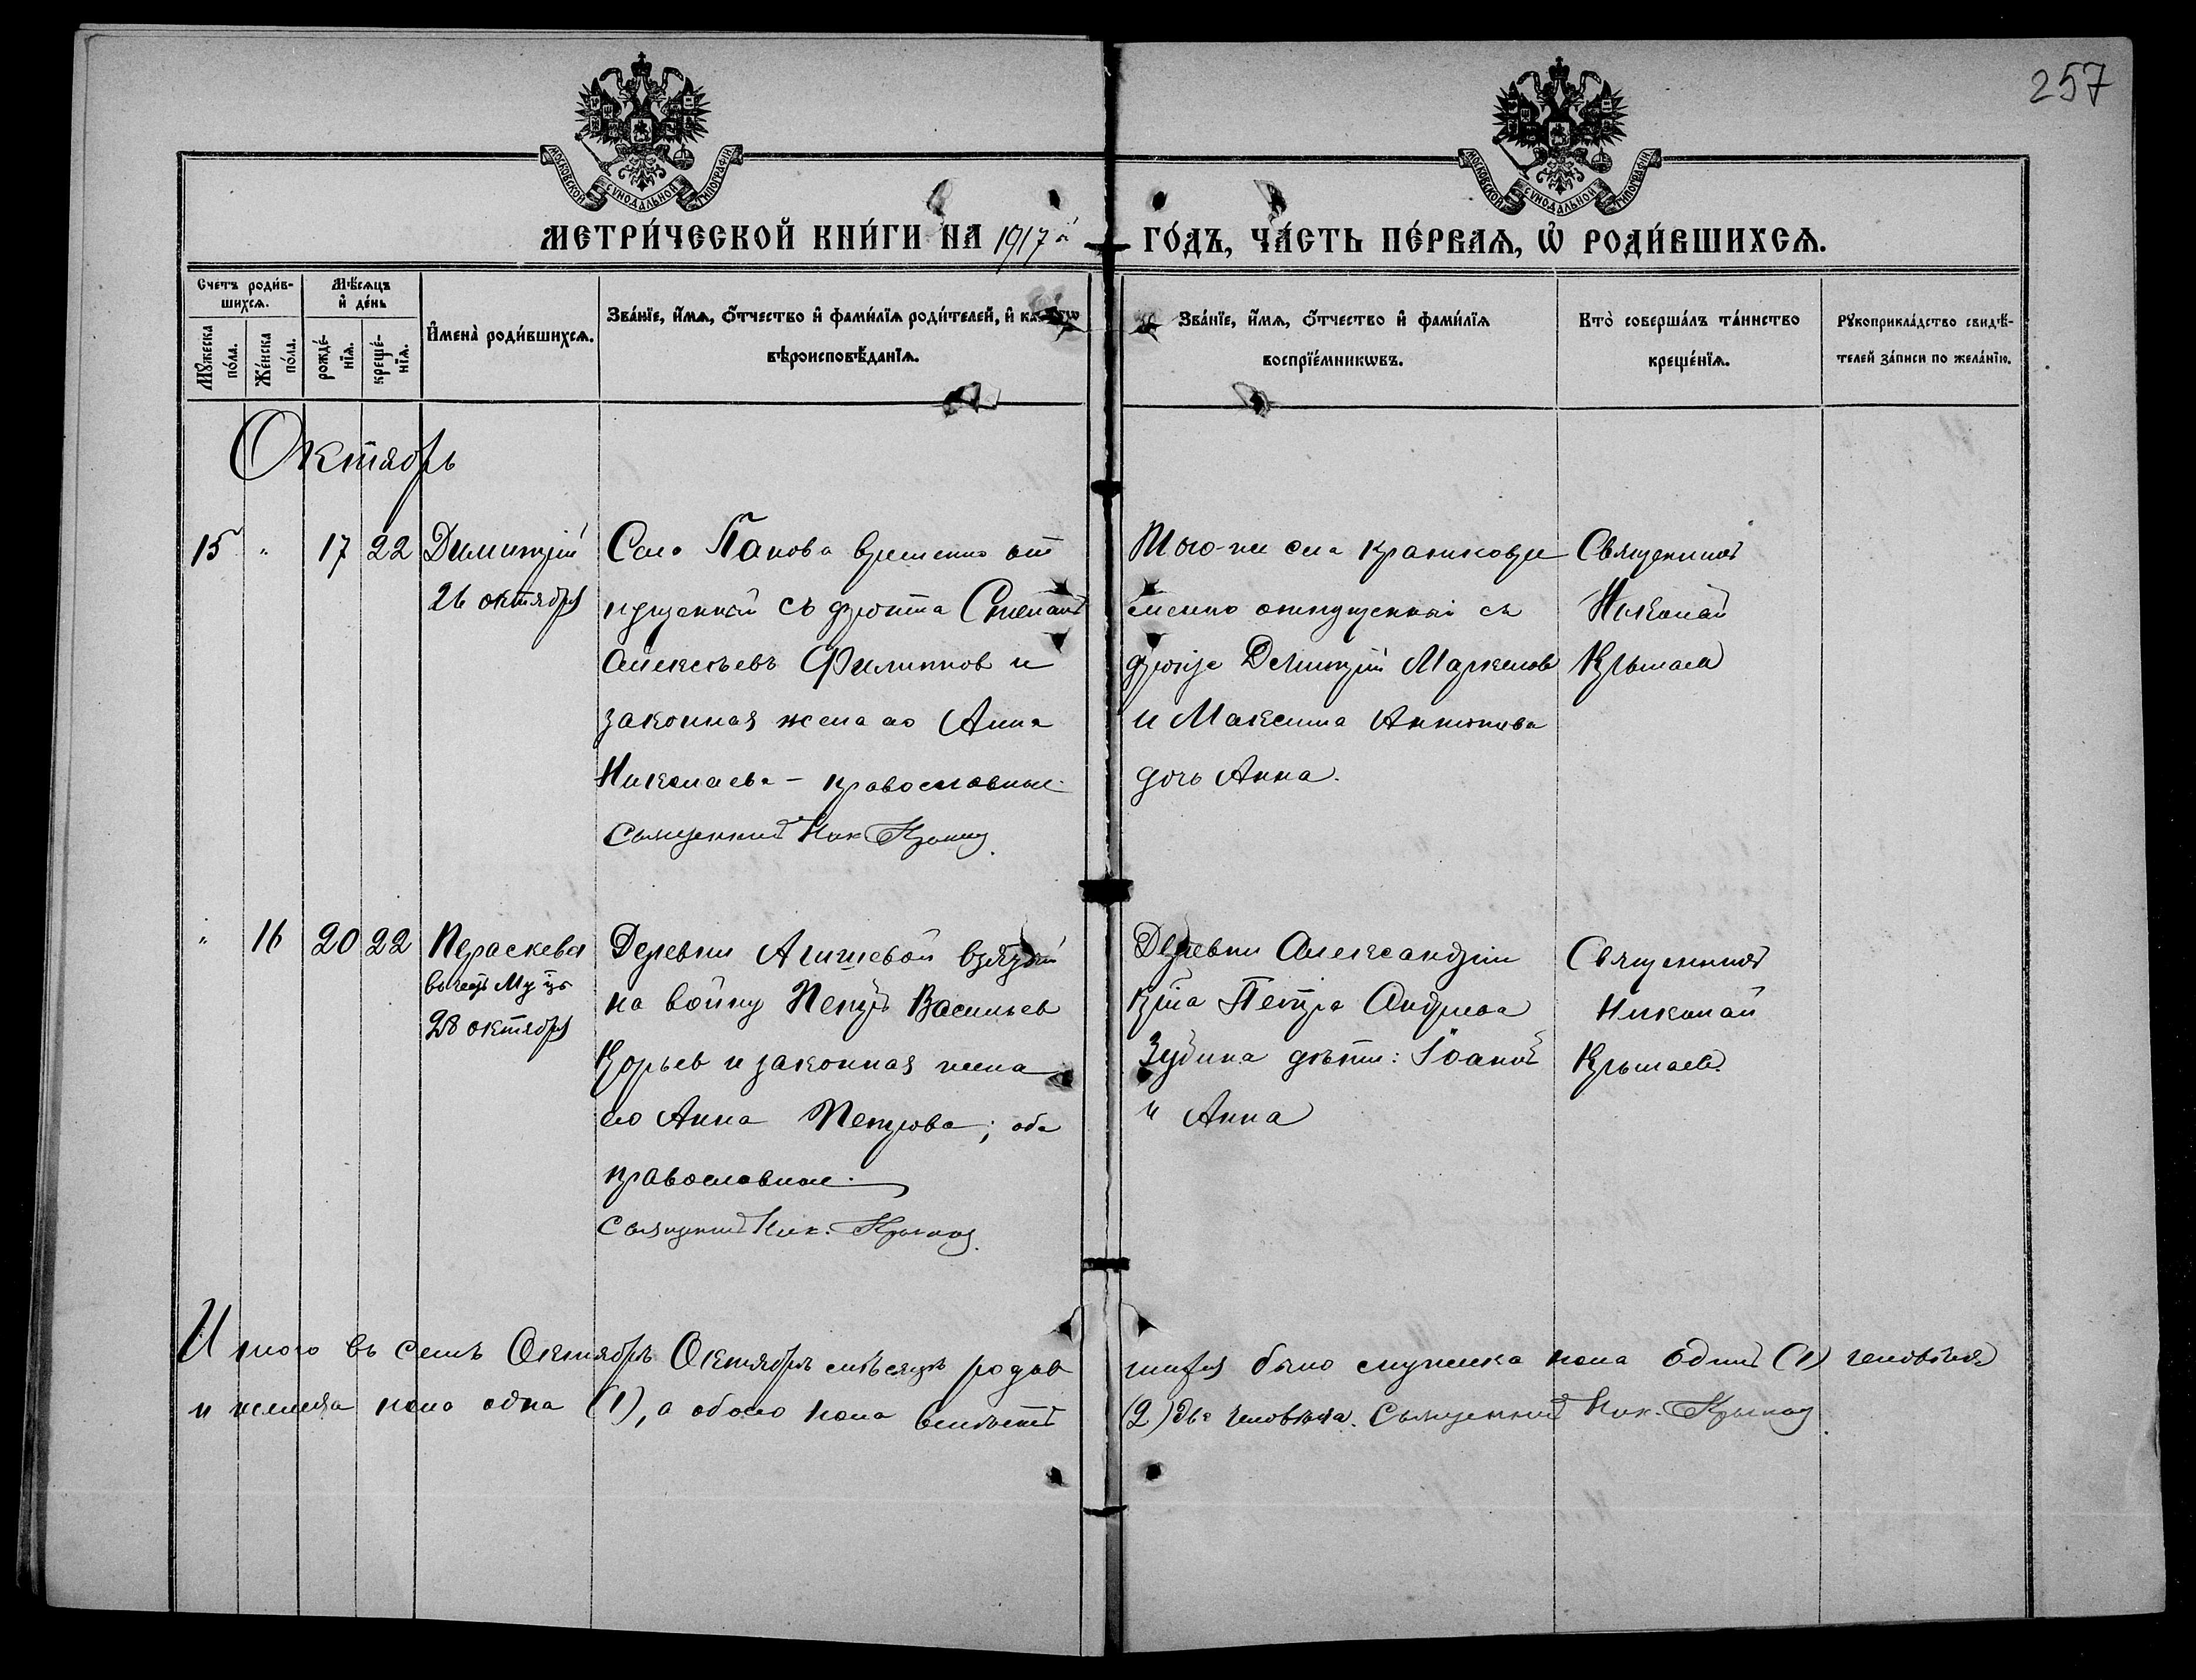 257
МОСКОВСКОЙ СѴНОДАЛЬНОЙ ТИПОГРАФІИ
МОСКОВСКОЙ СѴНОДАЛЬНОЙ ТИПОГРАФІИ
МЕТРИ́ЧЕСКОЙ КНИ́ГИ НА 1917й ГО́ДЪ, ЧА́СТЬ ПЕ́РВАѦ, Ѡ҆ РОДИ́ВШИХСѦ.
Счетъ роди́в-
шихсѧ.
Мꙋжеска
по́ла.
Же́нска
по́ла.
Мѣ́сѧцъ
и҆ де́нь
рожде́-
нїѧ.
креще́-
нїѧ.
И҆мена̀ роди́вшихсѧ.
Зва́нїе, и҆́мѧ, ѻ҆́тчество и҆ фами́лїѧ роди́телей, и҆
вѣроисповѣ́данїѧ.
Зва́нїе, и҆́мѧ, ѻ҆́тчество и҆ фами́лїѧ
воспрїе́мникѡвъ.
Кто̀ соверша́лъ та́инство
креще́нїѧ.
Рꙋкоприкла́дство свидѣ́-
телей за́писи по жела́нїю.
Октябрь
15 " 17 22 Димитрій
26 октября
Села Панова временно от
пущенный съ фронта Степанъ
Алексѣевъ Филиппов и
законная жена его Анна
Николаева - православные
Священникъ Ник Крылов.
Того-же села
сменно отпущенный съ
Димитрій Маркелов
и Максима Антонова
дочь Анна.
Священникъ
Николай
Крылов
" 16 20 22 Параскева
въ честь Муц
28 октября
Деревни Агишевой взятый
на войну Петръ Васильев
Зорьев и законная жена
его Анна Петрова; оба
православные.
Священникъ Ник. Крылов.
Деревни Александрій
Петра Андреева
Зубина дѣти: Іоаннъ
и Анна
Священникъ
Николай
Крылов.
Итого въ семъ Октябрѣ Октябрѣ мѣсяцѣ родив шихся было мужеска пола одинъ (1) человѣкъ
и женска пола одна (1), а обоего пола вмѣстѣ (2) два человѣка. Священникъ Ник. Крылов.